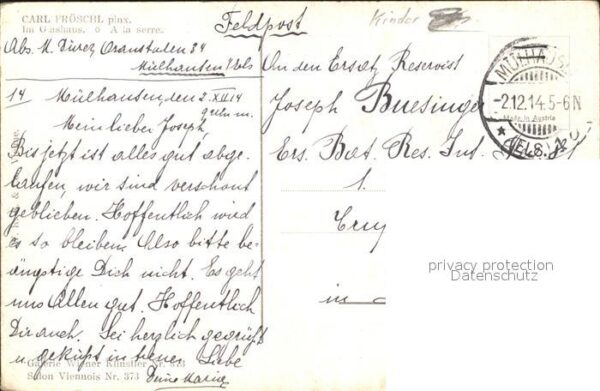 CARL FRÖSCHL pinx.
Im Glashaus. o A la serre.
Feldpost
Kinder
Abs. M. Oranstaden 34
Mülhausen /Els
14 Mülhausen, den 2.XII.14
Mein lieber Joseph,
Bis jetzt ist alles gut abge-
laufen, wir sind verschont
geblieben. Hoffentlich wird
es so bleiben. Also bitte be-
ängstige Dich nicht. Es geht
uns Allen gut. Hoffentlich
Dir auch. Sei herzlich gegrüßt
u geküßt in treuer Liebe
Deine Marie
Galerie Wiener Künstler Nr. 373
Salon Viennois Nr. 373
An den Ersatz Reservist
Joseph Buesinger
Ers. Bat. Res. Inf.
1.
in
MÜLHAUS
-2.12.14.5-6N
(ELS.)
Made in Austria
privacy protection
Datenschutz